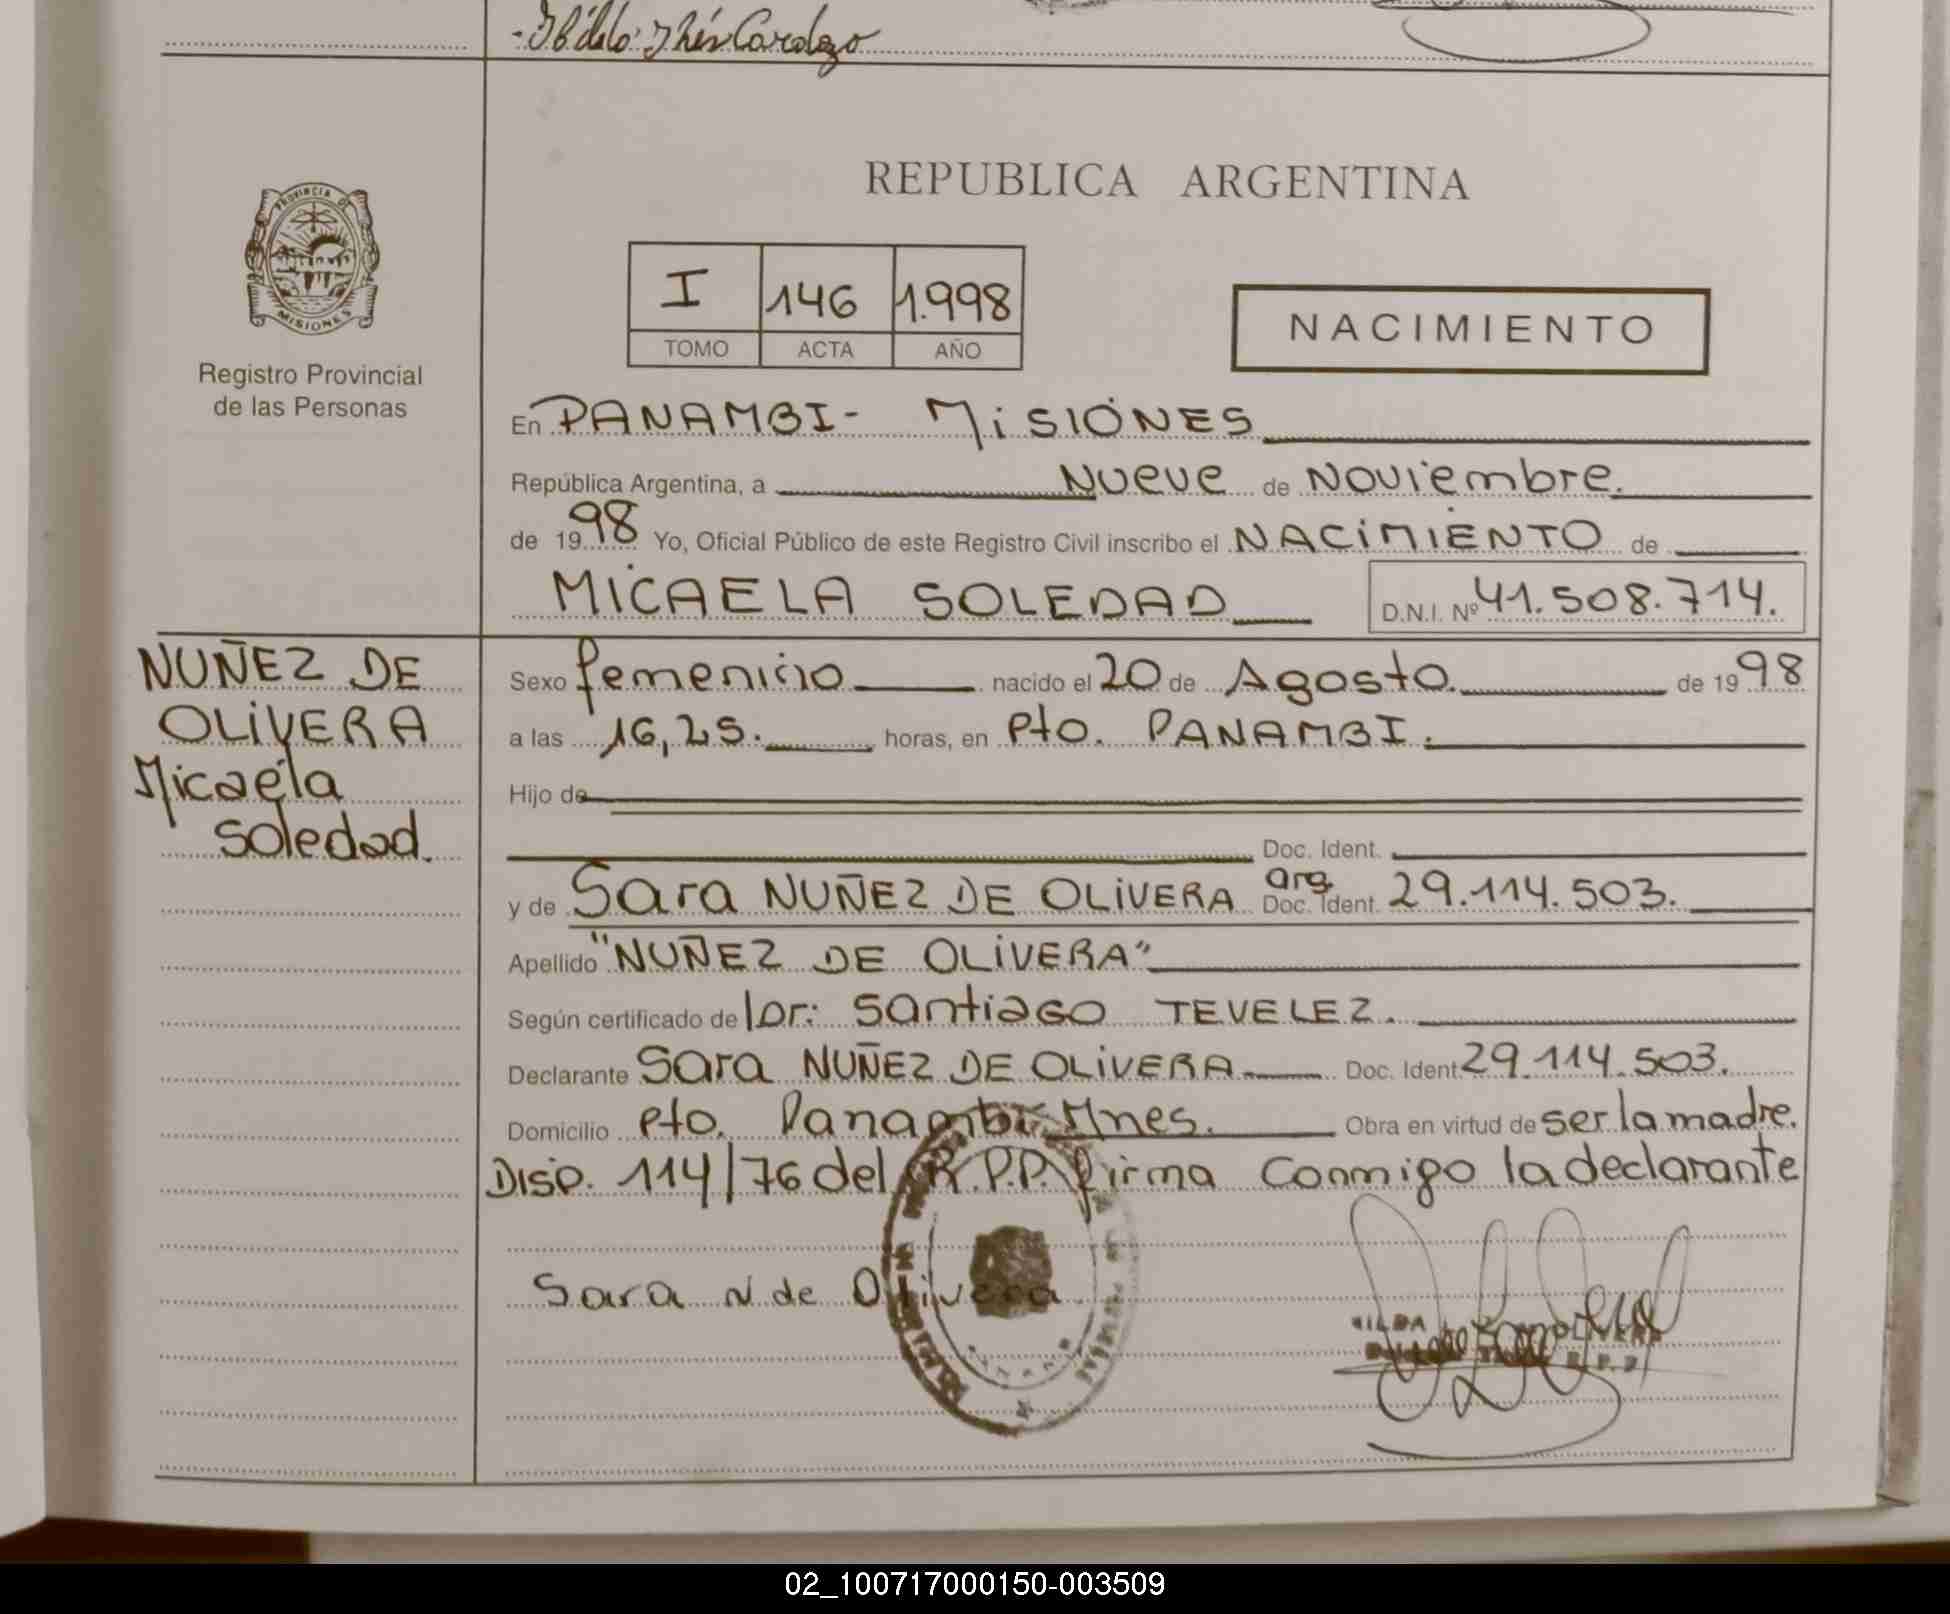 Cardozo
REPUBLICA ARGENTINA
PROVINCIA DE
MISIONES
Registro Provincial
de las Personas
I 146 1.998
TOMO ACTA AÑO
NACIMIENTO
En PANAMBI- MiSIONES
República Argentina, a Nueve de Noviembre.
de 1998 Yo, Oficial Público de este Registro Civil inscribo el NACiMIENTO de
MICAELA SOLEDAD D.N.I. Nº 41.508.714.
NUÑEZ DE
OLiVERA
Micaela
Soledad.
Sexo femenino nacido el 20 de Agosto. de 1998
a las 16,25. horas, en Pto. PANAMBI.
Hijo de
Doc. Ident.
y de Sara NUÑEZ DE OLiVERA arg. Doc. Ident. 29.114.503.
Apellido "NUÑEZ DE OLiVERA"
Según certificado de Dr: Santiago TEVELEZ.
Declarante Sara NUÑEZ DE OLiVERA Doc. Ident 29.114.503.
Domicilio Pto. Panambi Mnes. Obra en virtud de ser la madre.
Disp. 114/76 del R.P.P. firma Conmigo la declarante
Sara N de Olivera
02_100717000150-003509